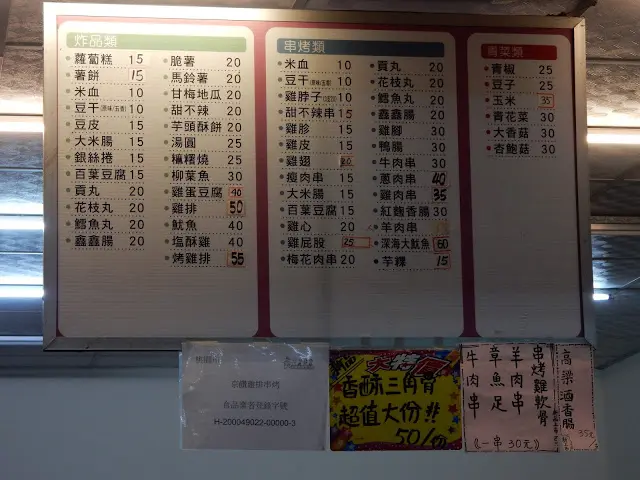 炸品類
蘿蔔糕 15
薯餅 15
米血 10
豆干 10
豆皮 15
大米腸 15
銀絲捲 15
百葉豆腐 15
貢丸 20
花枝丸 20
鱈魚丸 20
鑫鑫腸 20
脆薯 20
馬鈴薯 20
甘梅地瓜 20
甜不辣 20
芋頭酥餅 20
湯圓 25
糯糬燒 25
柳葉魚 30
雞蛋豆腐 40
雞排 50
魷魚 40
塩酥雞 40
烤雞排 55
串烤類
米血 10
豆干 10
雞脖子 10
甜不辣串 15
雞胗 15
雞皮 15
雞翅
瘦肉串 15
大米腸 15
百葉豆腐 15
雞心 20
雞屁股 25
梅花肉串 20
貢丸 20
花枝丸 20
鱈魚丸 20
鑫鑫腸 20
雞腳 30
鴨腸 30
牛肉串 30
蔥肉串 40
雞肉串 35
紅麴香腸 30
羊肉串
深海大魷魚 60
芋粿 15
青菜類
青椒 25
豆子 25
玉米 35
青花菜 30
大香菇 30
杏鮑菇 30
食品業者登錄字號
H-200049022-00000-3
香酥三角骨
超值大份!!
50/份
串烤雞軟骨
羊肉串
章魚足
牛肉串
《一串30元》
高粱酒香腸
35元